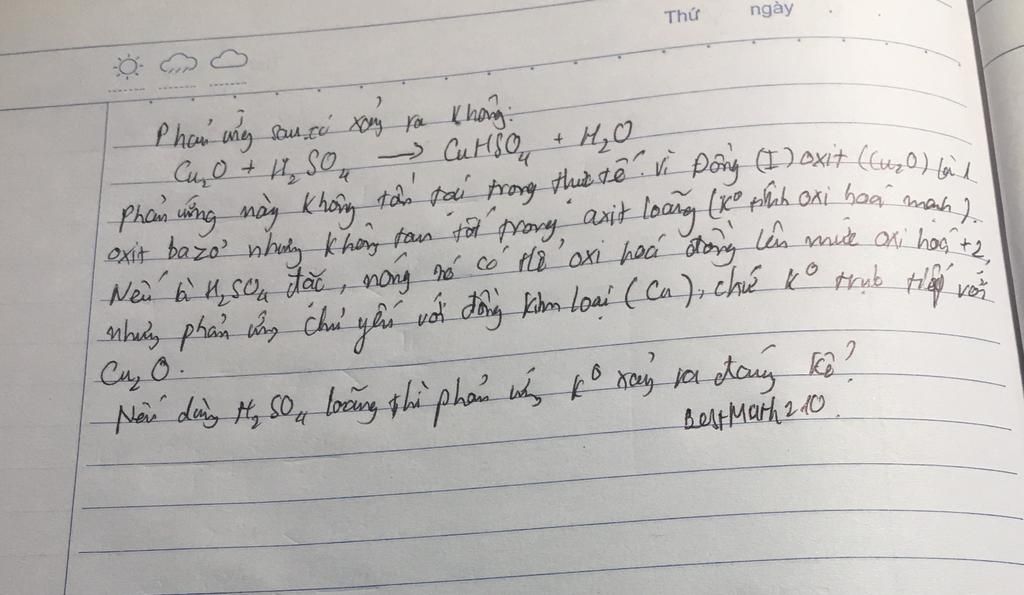 Thứ ngày
Phản ứng sau có xảy ra không:
Cu₂O + H₂SO₄ → CuHSO₄ + H₂O
phản ứng này không tồn tại trong thực tế. Vì Đồng (I) oxit (Cu₂O) là 1
oxit bazơ nhưng không tan tốt trong axit loãng (K⁰ tính oxi hoá mạnh).
Nếu là H₂SO₄ đặc, nóng nó có thể oxi hoá đồng lên mức oxi hoá +2,
nhưng phản ứng chủ yếu với đồng kim loại (Cu), chứ K⁰ trực tiếp với
Cu₂O.
Nếu dùng H₂SO₄ loãng thì phản ứng K⁰ xảy ra đáng kể?
BestMath210.